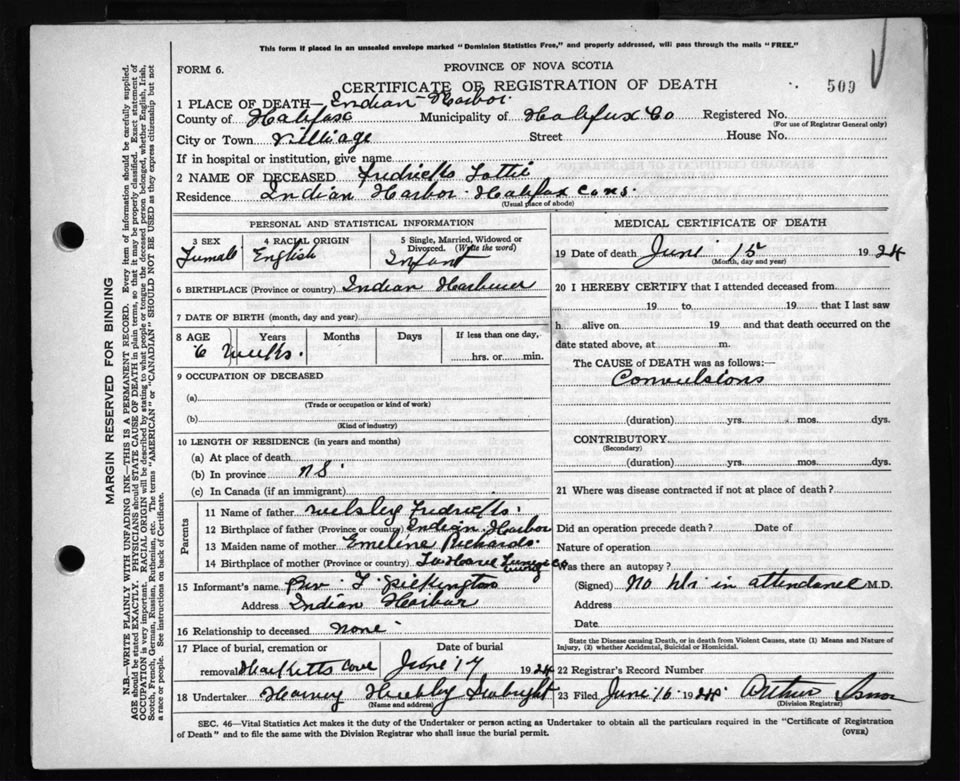 This form if placed in an unsealed envelope marked "Dominion Statistics Free," and properly addressed, will pass through the mails "FREE."
FORM 6.
PROVINCE OF NOVA SCOTIA
CERTIFICATE OF REGISTRATION OF DEATH
509
1 PLACE OF DEATH— Indian Harbor.
County of Halifax Municipality of Halifax Co Registered No.
(For use of Registrar General only)
City or Town Villiage Street House No.
If in hospital or institution, give name
2 NAME OF DECEASED Fudricks Lottie
Residence Indian Harbor Halifax Cons.
(Usual place of abode)
PERSONAL AND STATISTICAL INFORMATION
3 SEX 4 RACIAL ORIGIN 5 Single, Married, Widowed or Divorced. (Write the word)
Female English Infant
6 BIRTHPLACE (Province or country) Indian
7 DATE OF BIRTH (month, day and year)
8 AGE Years Months Days If less than one day,
6 Weeks. hrs. or min.
9 OCCUPATION OF DECEASED
(a)
(Trade or occupation or kind of work)
(b)
(Kind of industry)
10 LENGTH OF RESIDENCE (in years and months)
(a) At place of death
(b) In province NS.
(c) In Canada (if an immigrant)
Parents
11 Name of father Fudricks.
12 Birthplace of father (Province or country) Indian Harbor
13 Maiden name of mother Emeline Richards.
14 Birthplace of mother (Province or country) Co
15 Informant's name Rev
Address Indian Harbor
16 Relationship to deceased None
17 Place of burial, cremation or removal Hacketts Cove
Date of burial June 17 1924
18 Undertaker Harvey Hubley Seabright
(Name and address)
MEDICAL CERTIFICATE OF DEATH
19 Date of death June 15 1924
(Month, day and year)
20 I HEREBY CERTIFY that I attended deceased from
19 to 19 that I last saw
h alive on 19 and that death occurred on the
date stated above, at m.
The CAUSE of DEATH was as follows:—
Convulsions
(duration) yrs. mos. dys.
CONTRIBUTORY
(Secondary)
(duration) yrs. mos. dys.
21 Where was disease contracted if not at place of death?
Did an operation precede death? Date of
Nature of operation
Was there an autopsy?
(Signed) No Dr. in attendance M.D.
Address
Date
State the Disease causing Death, or in death from Violent Causes, state (1) Means and Nature of
Injury, (2) whether Accidental, Suicidal or Homicidal.
22 Registrar's Record Number
23 Filed June 16 1924 Arthur Isnor
(Division Registrar)
SEC. 46—Vital Statistics Act makes it the duty of the Undertaker or person acting as Undertaker to obtain all the particulars required in the "Certificate of Registration
of Death" and to file the same with the Division Registrar who shall issue the burial permit.
(OVER)
MARGIN RESERVED FOR BINDING
N.B.—WRITE PLAINLY WITH UNFADING INK—THIS IS A PERMANENT RECORD. Every item of information should be carefully supplied.
AGE should be stated EXACTLY. PHYSICIANS should STATE CAUSE OF DEATH in plain terms, so that it may be properly classified. Exact statement of
OCCUPATION is very important. RACIAL ORIGIN will be described by stating to what people or tongue the deceased person belonged, whether English, Irish,
Scotch, French, German, Russian, Ruthenian, etc. The terms "AMERICAN" or "CANADIAN" SHOULD NOT BE USED as they express citizenship but not
a race or people. See instructions on back of Certificate.